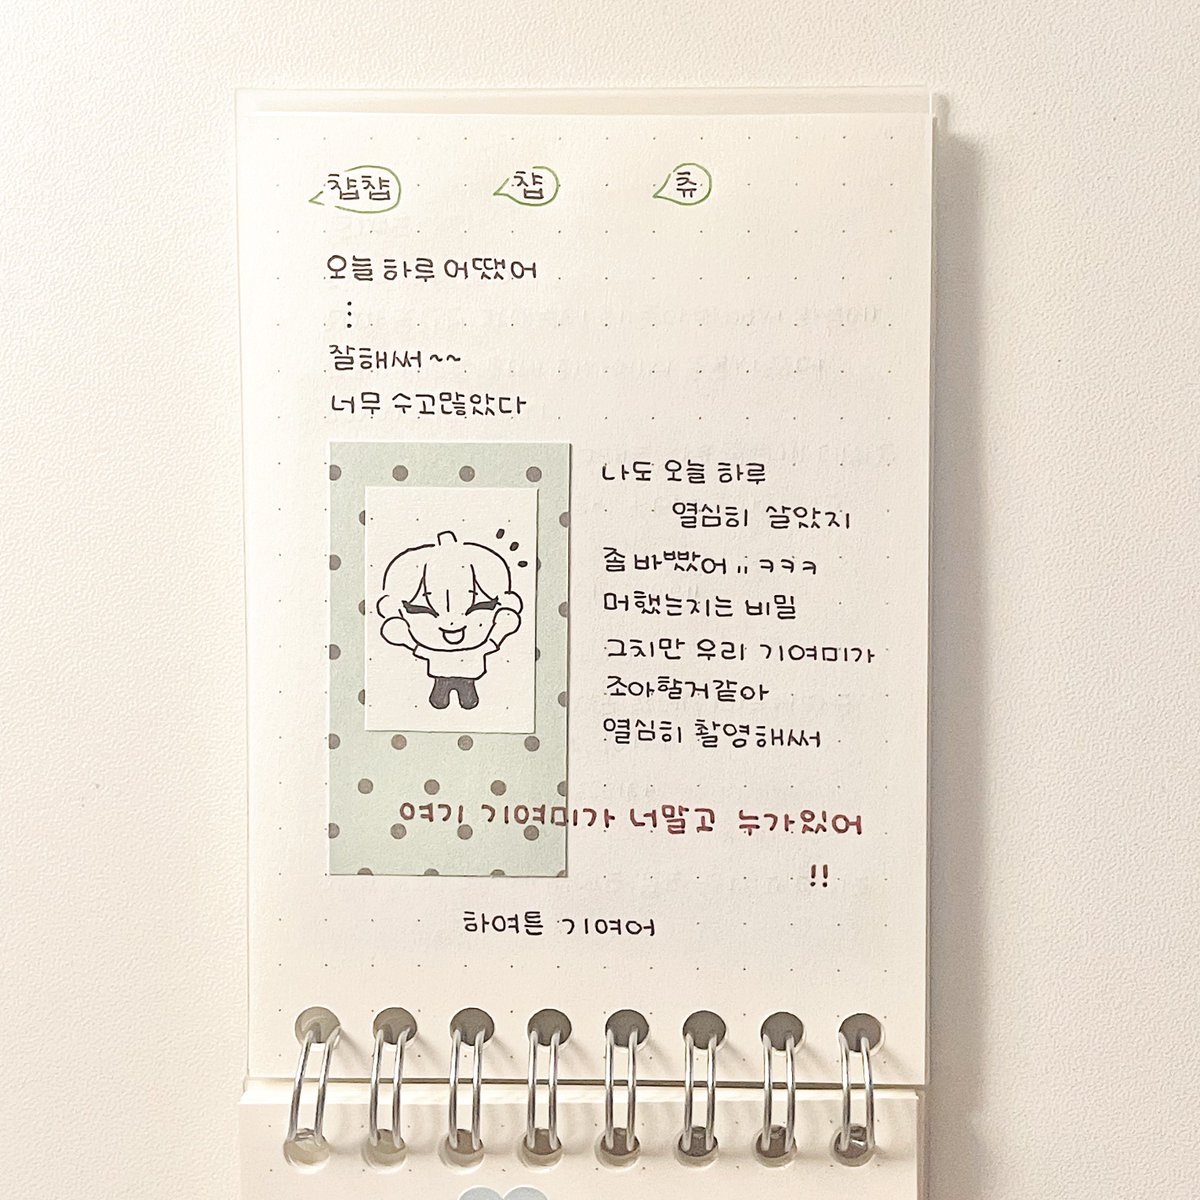 챱챱 챱 츄
오늘 하루 어땠어
⋮
잘해써~~
너무 수고많았다
나도 오늘 하루
열심히 살았지
좀 바빴어;; ㅋㅋㅋ
머했는지는 비밀
그치만 우리 기여미가
조아할거같아
열심히 촬영해써
여기 기여미가 너말고 누가있어
!!
하여튼 기여어